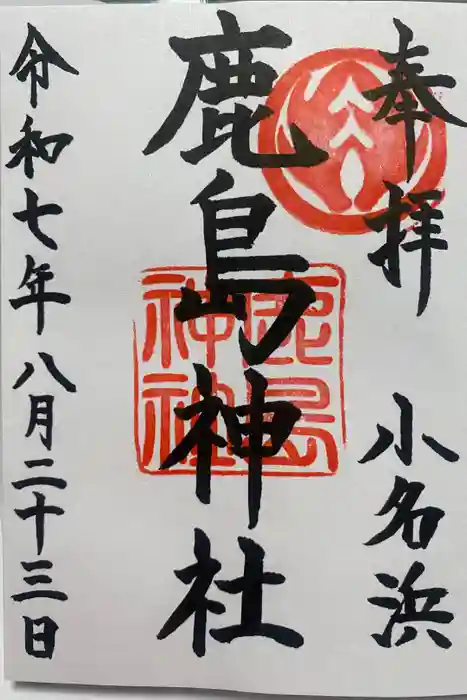 奉拝 小名浜
鹿島神社
鹿島
神社
令和七年八月二十三日